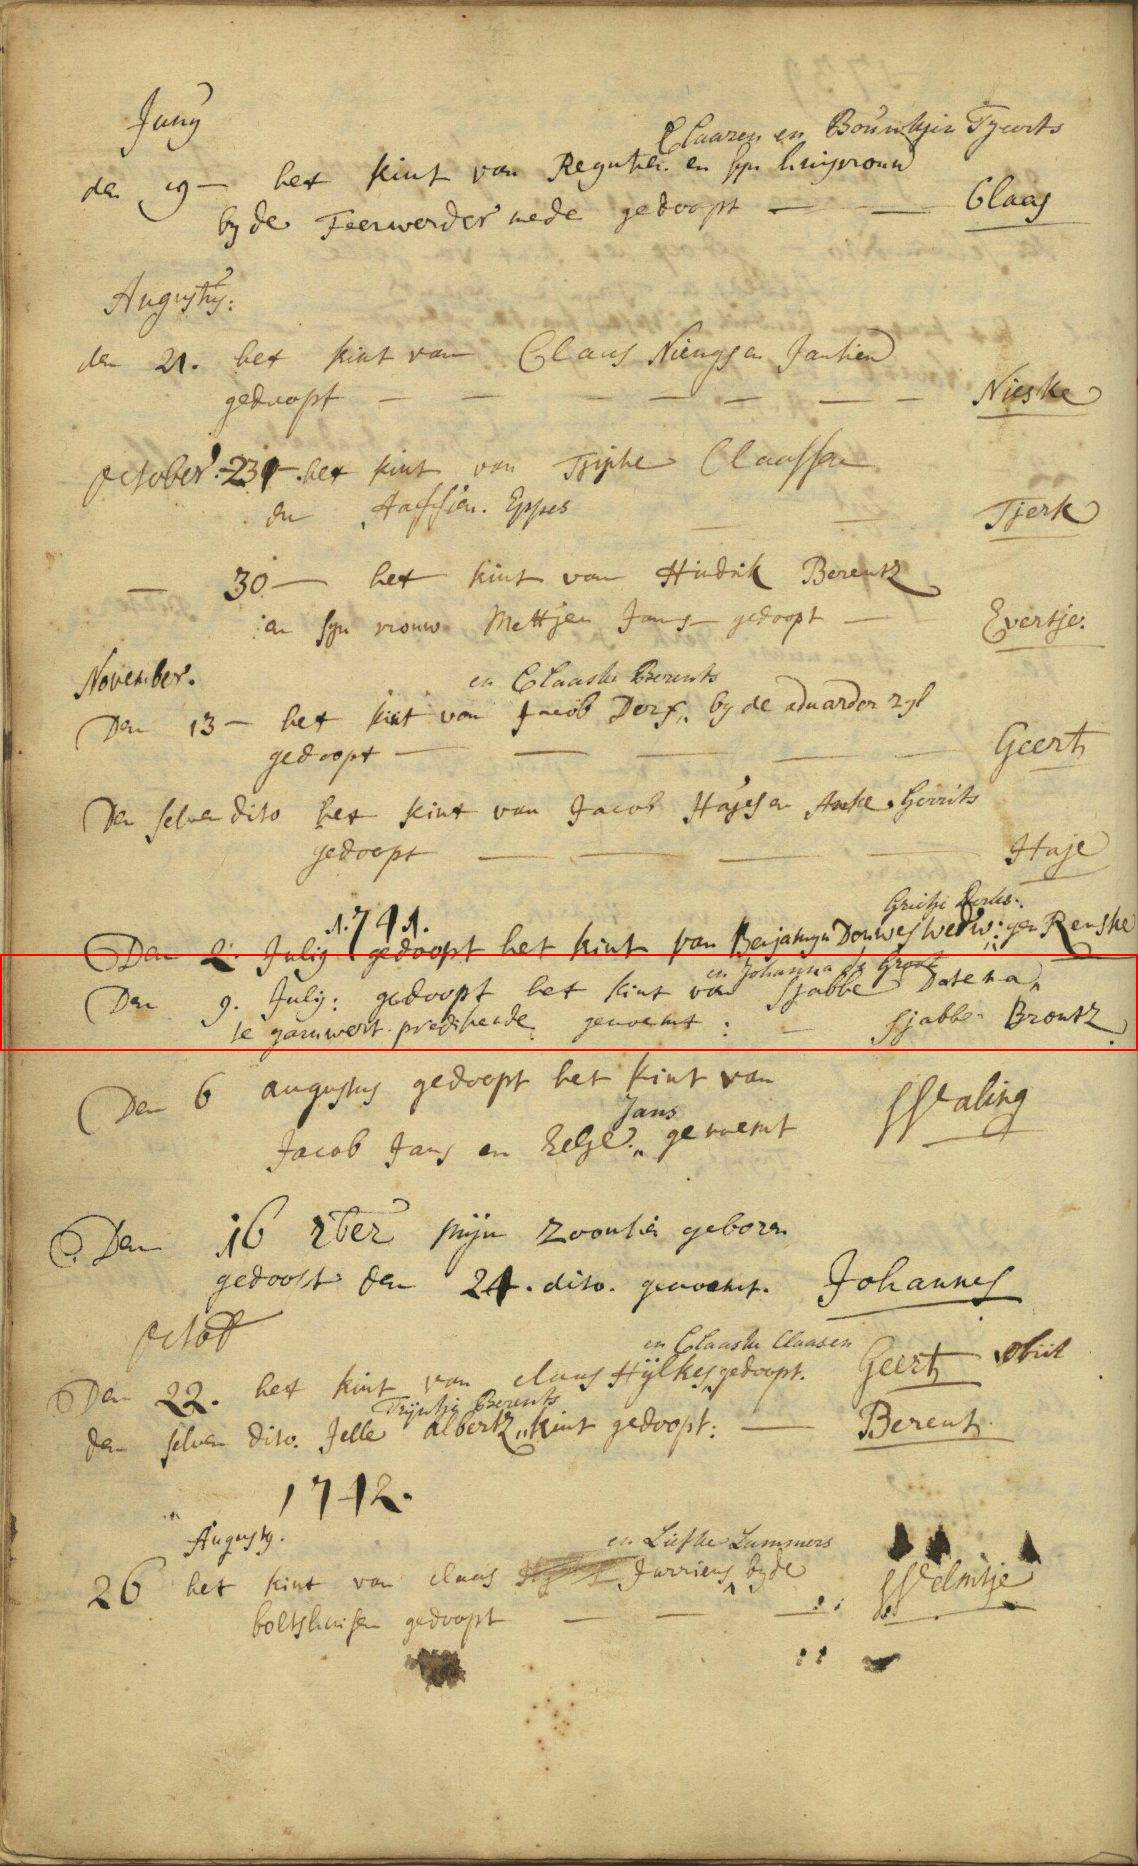 Juny
Claazen en Bouwkjin Tjeerts
den 19 — het kint van Regnder en syn huisvrouw
by de Feerwerder mede gedoopt — — Claas
Augusty:
den 21. het kint van Claus Niengs en Jantien
gedoopt — — — — — — — Nieske
October 23 — het kint van Tjiphe Claassen
en Aaffien. Eppes — — Tjerk
— 30 — het kint van Hindrik Berentz
en syn vrouw Mettjen Jans gedoopt — Evertje.
November.
en Claaske Berents
Den 13 — het kint van Jacob Derx,, by de aduarder zyl
gedoopt — — — — — Geert
Den selven dito het kint van Jacob Hajes en Anke Gerrits
gedoopt — — — — Haje
1741.
Grietje Derks.
Den 2. July gedoopt het kint van Benjamyn Douwes Renske
en Johanna de Groot
Den 9. July: gedoopt het kint van Sjabbe Datema,,
te garnwert predikende genoemt: — Sjabbe Brontz
Den 6 augustus gedoopt het kint van
Jans
Jacob Jans en Eelje,, genoemt Waling
Den 16 7ber mijn zoontie geboren
gedoopt den 24. dito. genoemt. Johannes
Octob
en Claaske Claasen
Den 22. het kint van claus Hijlkes gedoopt. Geert obiit
Trijntje Berents
den selven dito. Jelle albertz,, kint gedoopt: — Berent
1742.
Augusty.
en Liefke Lammers
26 het kint van claus Jurriens by de
boltshuisen gedoopt — — — Welmtje